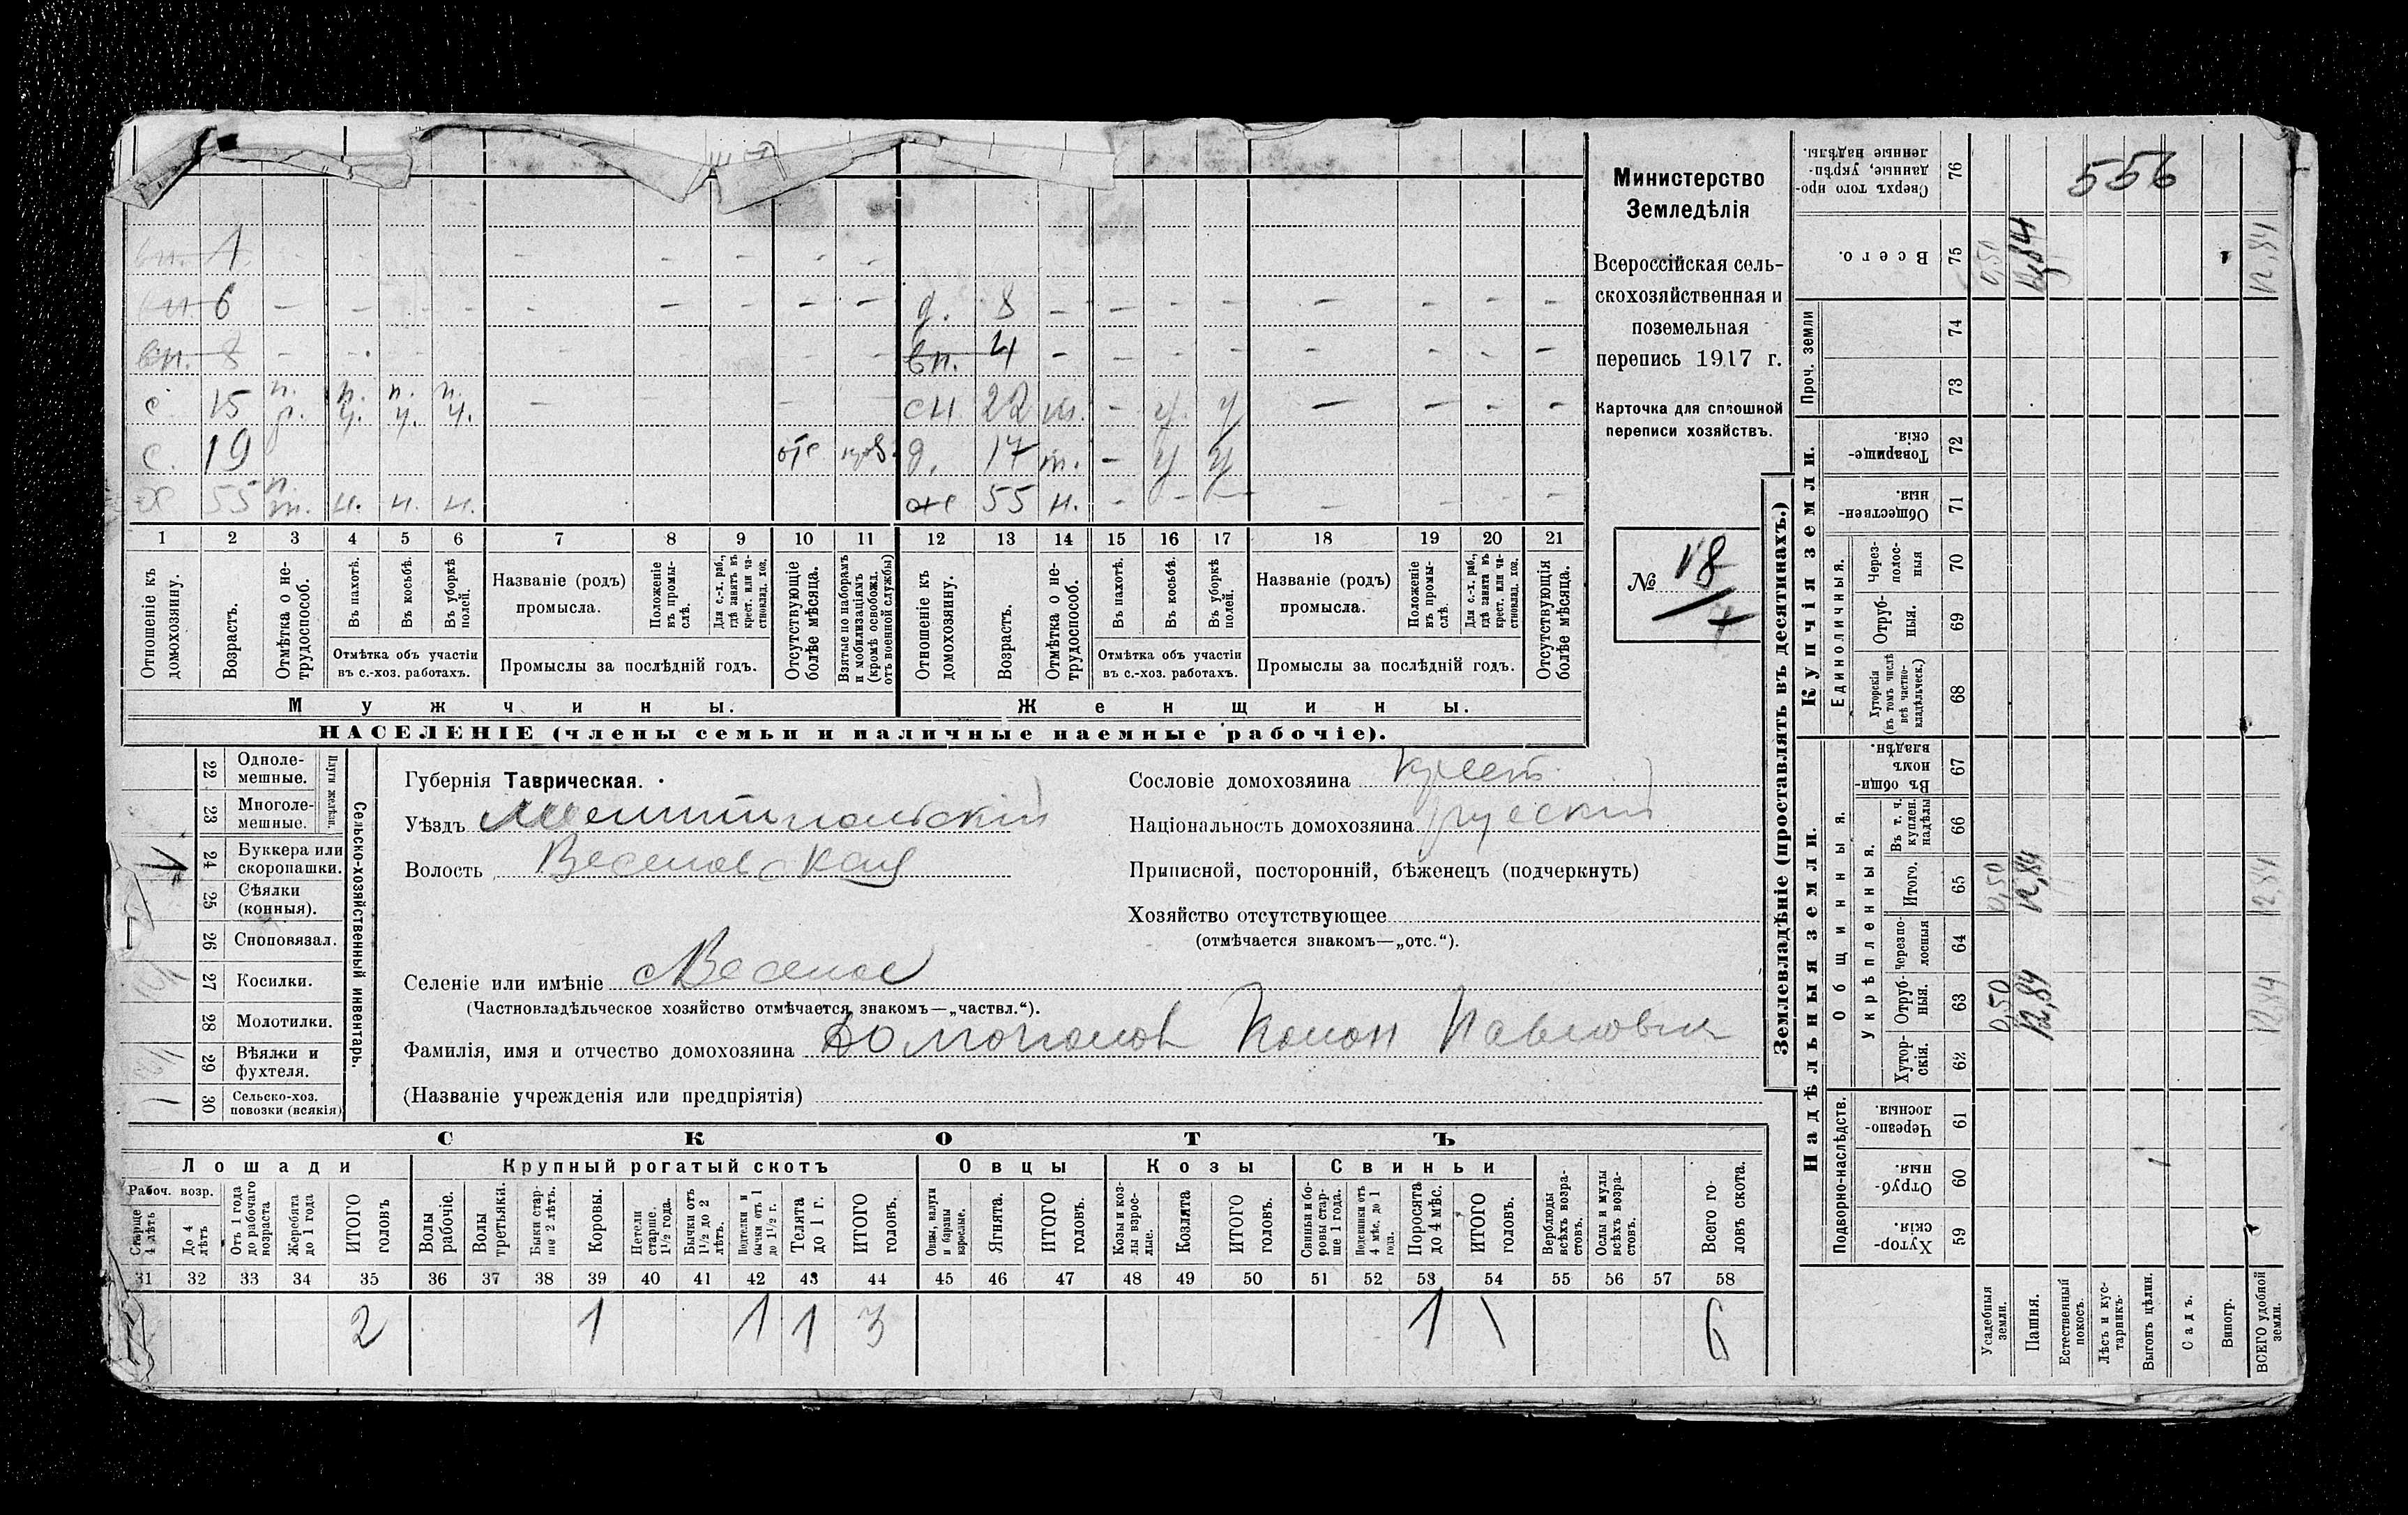 556
Министерство
Земледѣлія
Всероссійская сель-
скохозяйственная и
поземельная
перепись 1917 г.
Карточка для сплошной
переписи хозяйствъ.
№ 18
вн. 1 — — — — — — — — — —
вн. 6 — — — — — — — — — — д. 8 — — — — — — — —
вн. 8 — — — — — — вн. 4 — — — — — — — —
с 15 п. р. п. ч. п. ч. п. ч. — — — сн 22 — у у — — — —
с. 19 отс д. 17 т. — у у
х 55 п. т. ч. ч. ч. же 55 н. — — — — — — —
1 2 3 4 5 6 7 8 9 10 11 12 13 14 15 16 17 18 19 20 21
Отношеніе къ домохозяину.
Возрастъ.
Отмѣтка о не-трудоспособ.
Въ пахотѣ.
Въ косьбѣ.
Въ уборкѣ полей.
Отмѣтка объ участіи
въ с.-хоз. работахъ.
Названіе (родъ)
промысла.
Положеніе въ промы-слѣ.
Для с.-х. раб., гдѣ занятъ въ крест. или ча-стновлад. хоз.
Промыслы за послѣдній годъ.
Отсутствующіе болѣе мѣсяца.
Взятые по наборамъ и мобилизаціямъ (кромѣ освобожд. отъ военной службы)
Отношеніе къ домохозяину.
Возрастъ.
Отмѣтка о не-трудоспособ.
Въ пахотѣ.
Въ косьбѣ.
Въ уборкѣ полей.
Отмѣтка объ участіи
въ с.-хоз. работахъ.
Названіе (родъ)
промысла.
Положеніе въ промы-слѣ.
Для с.-х. раб., гдѣ занята въ крест. или ча-стновлад. хоз.
Промыслы за послѣдній годъ.
Отсутствующія болѣе мѣсяца.
Мужчины.
Женщины.
НАСЕЛЕНІЕ (члены семьи и наличные наемные рабочіе).
22 Одноле-мешные.
23 Многоле-мешные.
Плуги желѣзн.
24 Буккера или скоропашки.
25 Сѣялки (конныя).
26 Сноповязал.
27 Косилки.
28 Молотилки.
29 Вѣялки и фухтеля.
30 Сельско-хоз. повозки (всякія)
Сельско-хозяйственный инвентарь.
Губернія Таврическая.
Уѣздъ Мелитопольскій
Волость Веселовская
Сословіе домохозяина крест.
Національность домохозяина русскій
Приписной, посторонній, бѣженецъ (подчеркнуть)
Хозяйство отсутствующее
(отмѣчается знакомъ—„отс.“).
Селеніе или имѣніе с Веселое
(Частновладѣльческое хозяйство отмѣчается знакомъ—„частвл.“).
Фамилія, имя и отчество домохозяина Конон Павлович
(Названіе учрежденія или предпріятія)
СКОТЪ
Лошади
Крупный рогатый скотъ
Овцы
Козы
Свиньи
Рабоч. возр.
Старше 4 лѣтъ
До 4 лѣтъ
Отъ 1 года до рабочаго возраста
Жеребята до 1 года
ИТОГО головъ
Волы рабочіе.
Волы третьяки.
Быки стар-ше 2 лѣтъ.
Коровы.
Нетели старше. 1 1/2 года.
Бычки отъ 1 1/2 до 2 лѣтъ.
Подтелки и бычки отъ 1 до 1 1/2 г.
Телята до 1 г.
ИТОГО головъ.
Овцы, валухи и бараны взрослые.
Ягнята.
ИТОГО головъ.
Козы и коз-лы взрос-лые.
Козлята
ИТОГО головъ.
Свиньи и бо-ровы стар-ше 1 года.
Подсвинки отъ 4 мѣс. до 1 года.
Поросята до 4 мѣс.
ИТОГО головъ.
Верблюды всѣхъ возра-стовъ.
Ослы и мулы всѣхъ возра-стовъ.
Всего го-ловъ скота.
31 32 33 34 35 36 37 38 39 40 41 42 43 44 45 46 47 48 49 50 51 52 53 54 55 56 57 58
2 1 1 1 3 1 1 6
Землевладѣніе (проставлять въ десятинахъ.)
Надѣльныя земли.
Купчія земли.
Проч. земли
Подворно-наслѣдств.
Общинныя.
Укрѣпленныя.
Единоличныя.
76 Сверхъ того про-данные, укрѣп-ленные надѣлы.
75 Всего. 0,50 12,84 12,84
74
73
72 Товарище-скія.
71 Обществен-ныя.
70 Через-полос-ныя
69 Отруб-ныя.
68 Хуторскія (въ томъ числѣ всѣ частно-владѣльческ.)
67 Въ общи-номъ владѣн.
66 Въ т. ч. куплен. надѣлы
65 Итого. 0,50 12,84 12,84
64 Черезпо-лосныя
63 Отруб-ныя. 0,50 12,84 12,84
62 Хутор-скія.
61 Черезпо-лосныя.
60 Отруб-ныя.
59 Хутор-скія.
Усадебныя земли.
Пашня.
Естественный покосъ.
Лѣсъ и кус-тарникъ.
Выгонъ цѣлин.
Садъ.
Виногр.
ВСЕГО удобной земли.